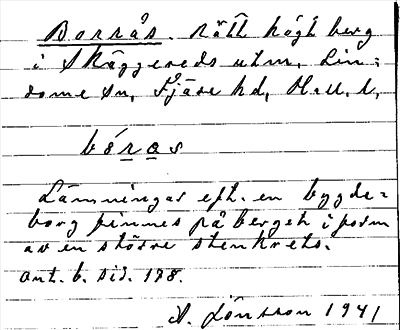 Borrås. Rätt högt berg
i Skäggereds utm, Lin-
dome sn, Fjäre hd, Hall. l,
bóras
Lämningar eft. en bygde-
borg finnes på berget i form
av en större stenkrets.
Ant. b. sid. 198.
A. Jönsson 1941